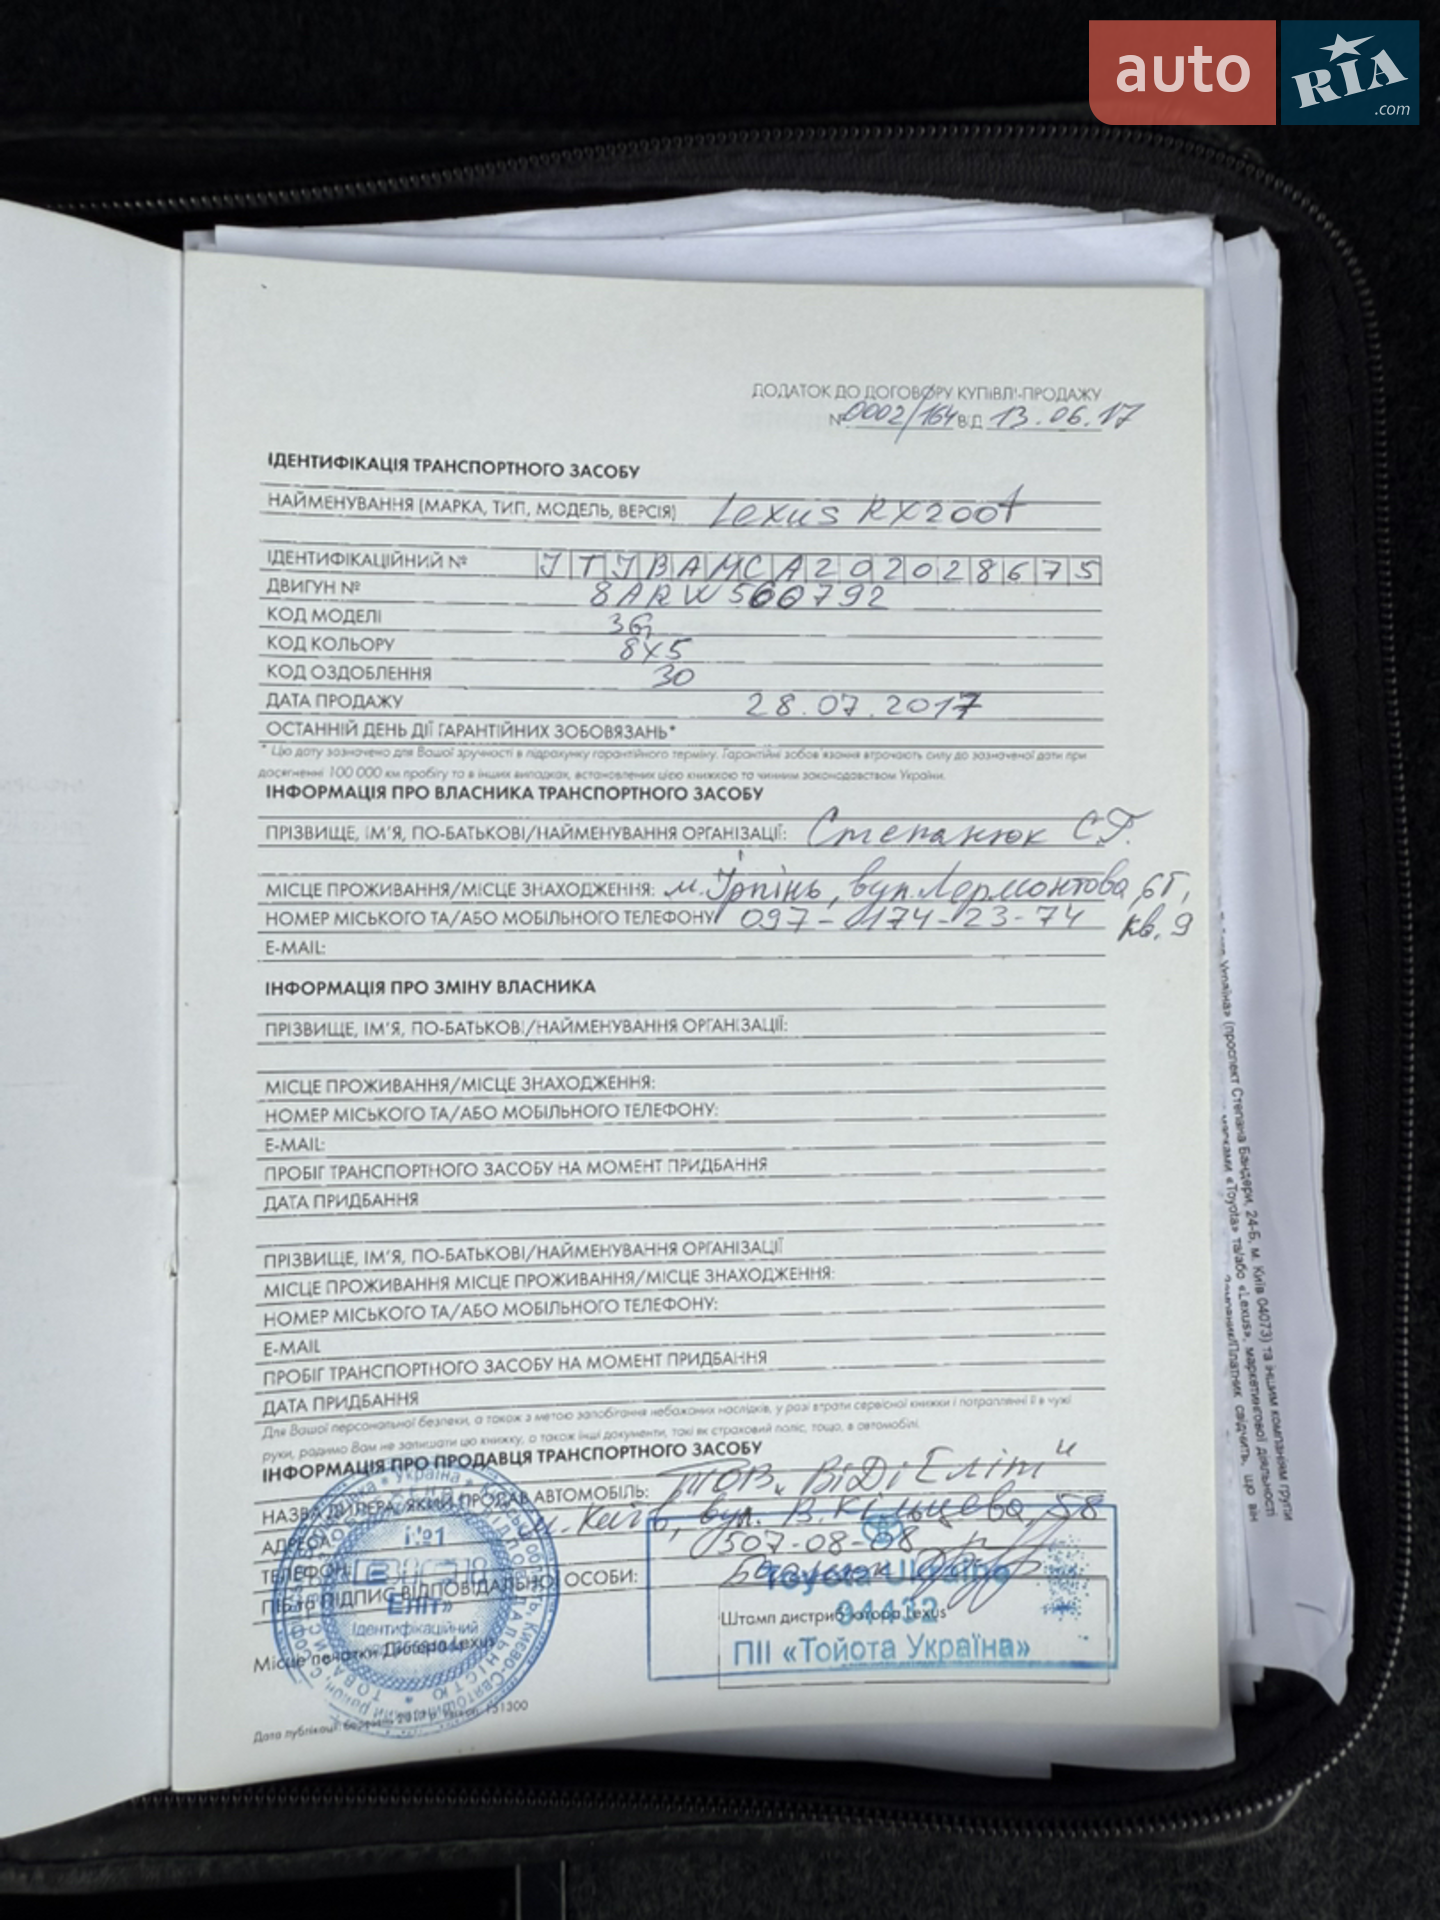 auto
RIA
.com
ДОДАТОК ДО ДОГОВОРУ КУПІВЛІ-ПРОДАЖУ
№ 0002/164 ВІД 13.06.17
ІДЕНТИФІКАЦІЯ ТРАНСПОРТНОГО ЗАСОБУ
НАЙМЕНУВАННЯ (МАРКА, ТИП, МОДЕЛЬ, ВЕРСІЯ) Lexus RX200t
ІДЕНТИФІКАЦІЙНИЙ № JTJBAMCA202028675
ДВИГУН № 8ARW560792
КОД МОДЕЛІ 3G
КОД КОЛЬОРУ 8X5
КОД ОЗДОБЛЕННЯ 30
ДАТА ПРОДАЖУ 28.07.2017
ОСТАННІЙ ДЕНЬ ДІЇ ГАРАНТІЙНИХ ЗОБОВЯЗАНЬ*
* Цю дату зазначено для Вашої зручності в підрахунку гарантійного терміну. Гарантійні зобов'язання втрачають силу до зазначеної дати при
досягненні 100 000 км пробігу та в інших випадках, встановлених цією книжкою та чинним законодавством України.
ІНФОРМАЦІЯ ПРО ВЛАСНИКА ТРАНСПОРТНОГО ЗАСОБУ
ПРІЗВИЩЕ, ІМ'Я, ПО-БАТЬКОВІ/НАЙМЕНУВАННЯ ОРГАНІЗАЦІЇ: Степанюк С.Г.
МІСЦЕ ПРОЖИВАННЯ/МІСЦЕ ЗНАХОДЖЕННЯ: м. Ірпінь, вул. Лермонтова 6Г,
НОМЕР МІСЬКОГО ТА/АБО МОБІЛЬНОГО ТЕЛЕФОНУ 097-0174-23-74 кв. 9
E-MAIL:
ІНФОРМАЦІЯ ПРО ЗМІНУ ВЛАСНИКА
ПРІЗВИЩЕ, ІМ'Я, ПО-БАТЬКОВІ/НАЙМЕНУВАННЯ ОРГАНІЗАЦІЇ:
МІСЦЕ ПРОЖИВАННЯ/МІСЦЕ ЗНАХОДЖЕННЯ:
НОМЕР МІСЬКОГО ТА/АБО МОБІЛЬНОГО ТЕЛЕФОНУ:
E-MAIL:
ПРОБІГ ТРАНСПОРТНОГО ЗАСОБУ НА МОМЕНТ ПРИДБАННЯ
ДАТА ПРИДБАННЯ
ПРІЗВИЩЕ, ІМ'Я, ПО-БАТЬКОВІ/НАЙМЕНУВАННЯ ОРГАНІЗАЦІЇ
МІСЦЕ ПРОЖИВАННЯ МІСЦЕ ПРОЖИВАННЯ/МІСЦЕ ЗНАХОДЖЕННЯ:
НОМЕР МІСЬКОГО ТА/АБО МОБІЛЬНОГО ТЕЛЕФОНУ:
E-MAIL
ПРОБІГ ТРАНСПОРТНОГО ЗАСОБУ НА МОМЕНТ ПРИДБАННЯ
ДАТА ПРИДБАННЯ
Для Вашої персональної безпеки, а також з метою запобігання небажаних наслідків, у разі втрати сервісної книжки і потраплянні її в чужі
руки, радимо Вам не залишати цю книжку, а також інші документи, такі як страховий поліс, тощо, в автомобілі.
ІНФОРМАЦІЯ ПРО ПРОДАВЦЯ ТРАНСПОРТНОГО ЗАСОБУ
НАЗВА ДИЛЕРА, ЯКИЙ ПРОДАВ АВТОМОБІЛЬ: ТОВ „ВіДі Еліт"
АДРЕСА: м. Київ, вул. В. Кільцева, 58
ТЕЛЕФОН: 0507-08-08
ПІБ та ПІДПИС ВІДПОВІДАЛЬНОЇ ОСОБИ:
№1
ВіДі
Еліт»
Ідентифікаційний
Toyota Ukraine
04432
ПІІ «Тойота Україна»
Штамп дистриб'ютора Lexus
Місце печатки Дилера Lexus
Дата публікації: березень
Україна» (проспект Степана Бандери, 24-Б, м. Київ 04073) та іншим компаніям групи
марками «Toyota» та/або «Lexus», маркетингової діяльності
Замовник/Платник свідчить, що він